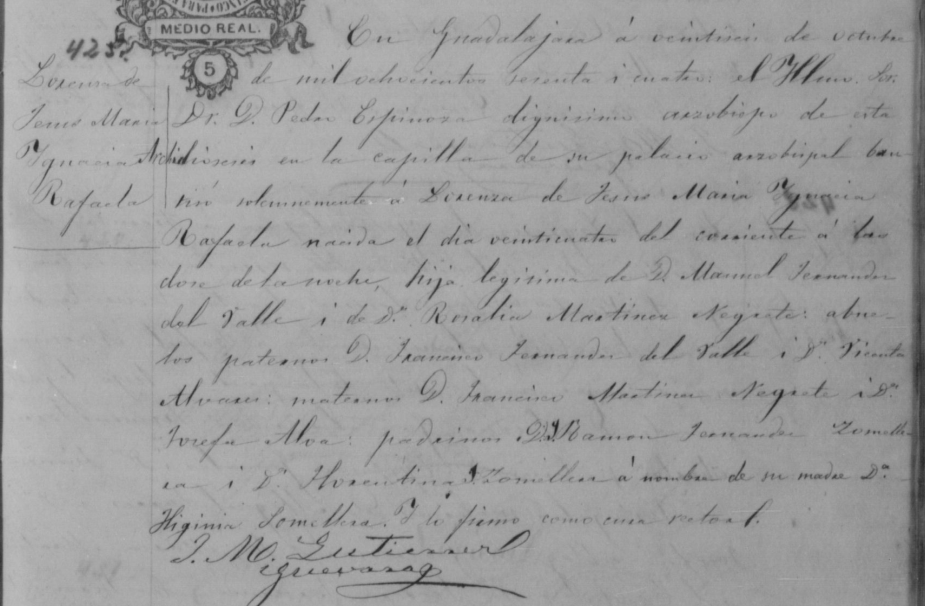 MEDIO REAL.
5
425.
Lorenza de
Jesus Maria
Ygnacia
Rafaela
En Guadalajara á veintiseis de octubre
de mil ochocientos sesenta i cuatro: el Yllmo. Sor.
Dr. D. Pedro Espinoza dignisimo arzobispo de esta
Archidiosesis en la capilla de su palacio arzobispal bau
tisó solemnemente á Lorenza de Jesus Maria Ygnacia
Rafaela nacida el dia veinticuatro del corriente á las
dose de la noche, hija legitima de D. Manuel Fernandez
del Valle i de Da. Rosalia Martinez Negrete: abue-
los paternos D. Francisco Fernandez del Valle i Da. Vicenta
Alvares: maternos D. Francisco Martinez Negrete i Da.
Josefa Alva: padrinos D. Ramon Fernandez Somelle
ra i Da. Florentina Somellera á nombre de su madre Da.
Higinia Somellera. Y lo firmo como cura rector.
J. M. Gutierrez
Guevara